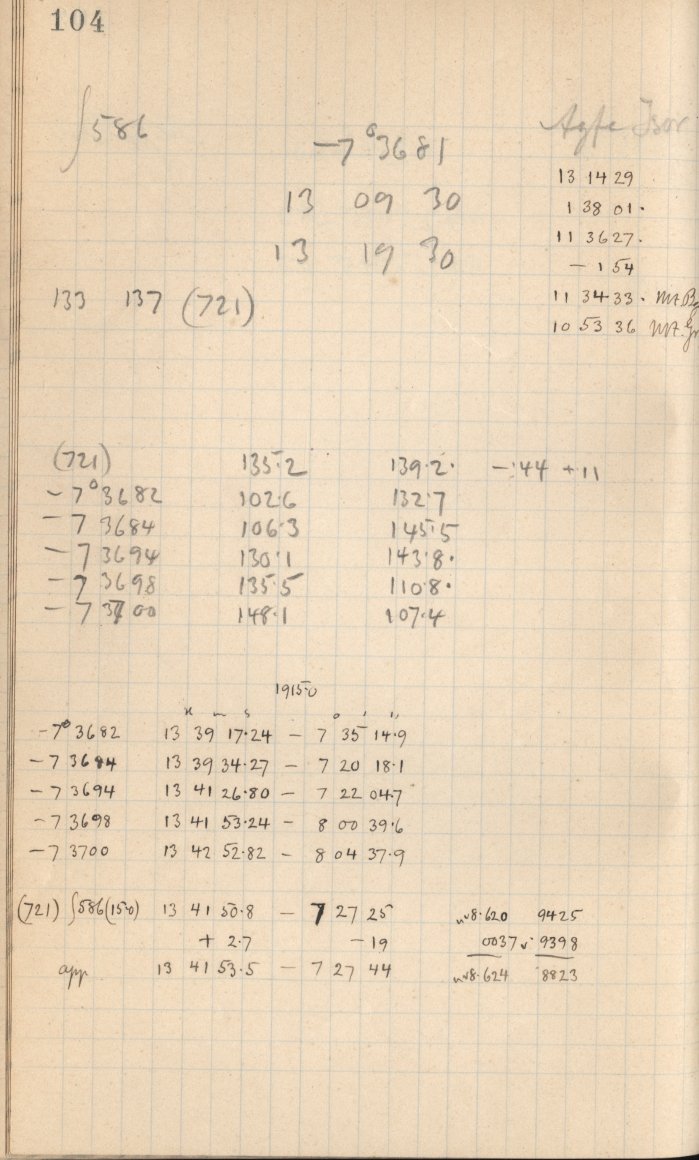 104
∫586
-7° 3681
Agfa Isor
13 09 30
13 19 30
133 137 (721)
13 14 29
1 38 01.
11 36 27.
- 1 54
11 34 33.
10 53 36
(721) 135.2 139.2. -.44 +.11
-7° 3682 102.6 132.7
-7 3684 106.3 145.5
-7 3694 130.1 143.8.
-7 3698 135.5 110.8.
-7 3700 148.1 107.4
1915.0
H m s ° ' "
-7° 3682 13 39 17.24 - 7 35 14.9
-7 3684 13 39 34.27 - 7 20 18.1
-7 3694 13 41 26.80 - 7 22 04.7
-7 3698 13 41 53.24 - 8 00 39.6
-7 3700 13 42 52.82 - 8 04 37.9
(721) ∫586(15.0) 13 41 50.8 - 7 27 25 8.620 9425
+ 2.7 -19 0037 9398
app 13 41 53.5 - 7 27 44 8.624 8823